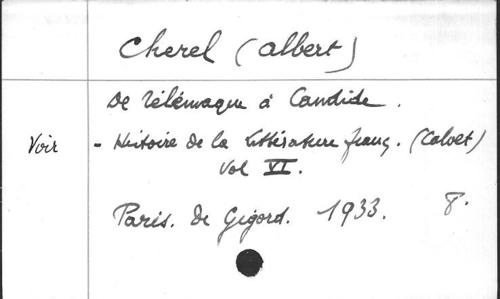 Cherel (Albert)
De Télémaque à Candide.
Voir - Histoire de la littérature franç. (Calvet)
Vol VI.
Paris. de Gigord. 1933. 8.